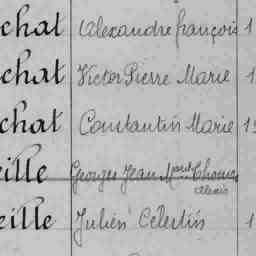 chat Alexandre françois 1
chat Victor Pierre Marie 1
chat Constantin Marie 19
eille Georges Jean Marie Thomas
alexis
eille Julien Célestin 1